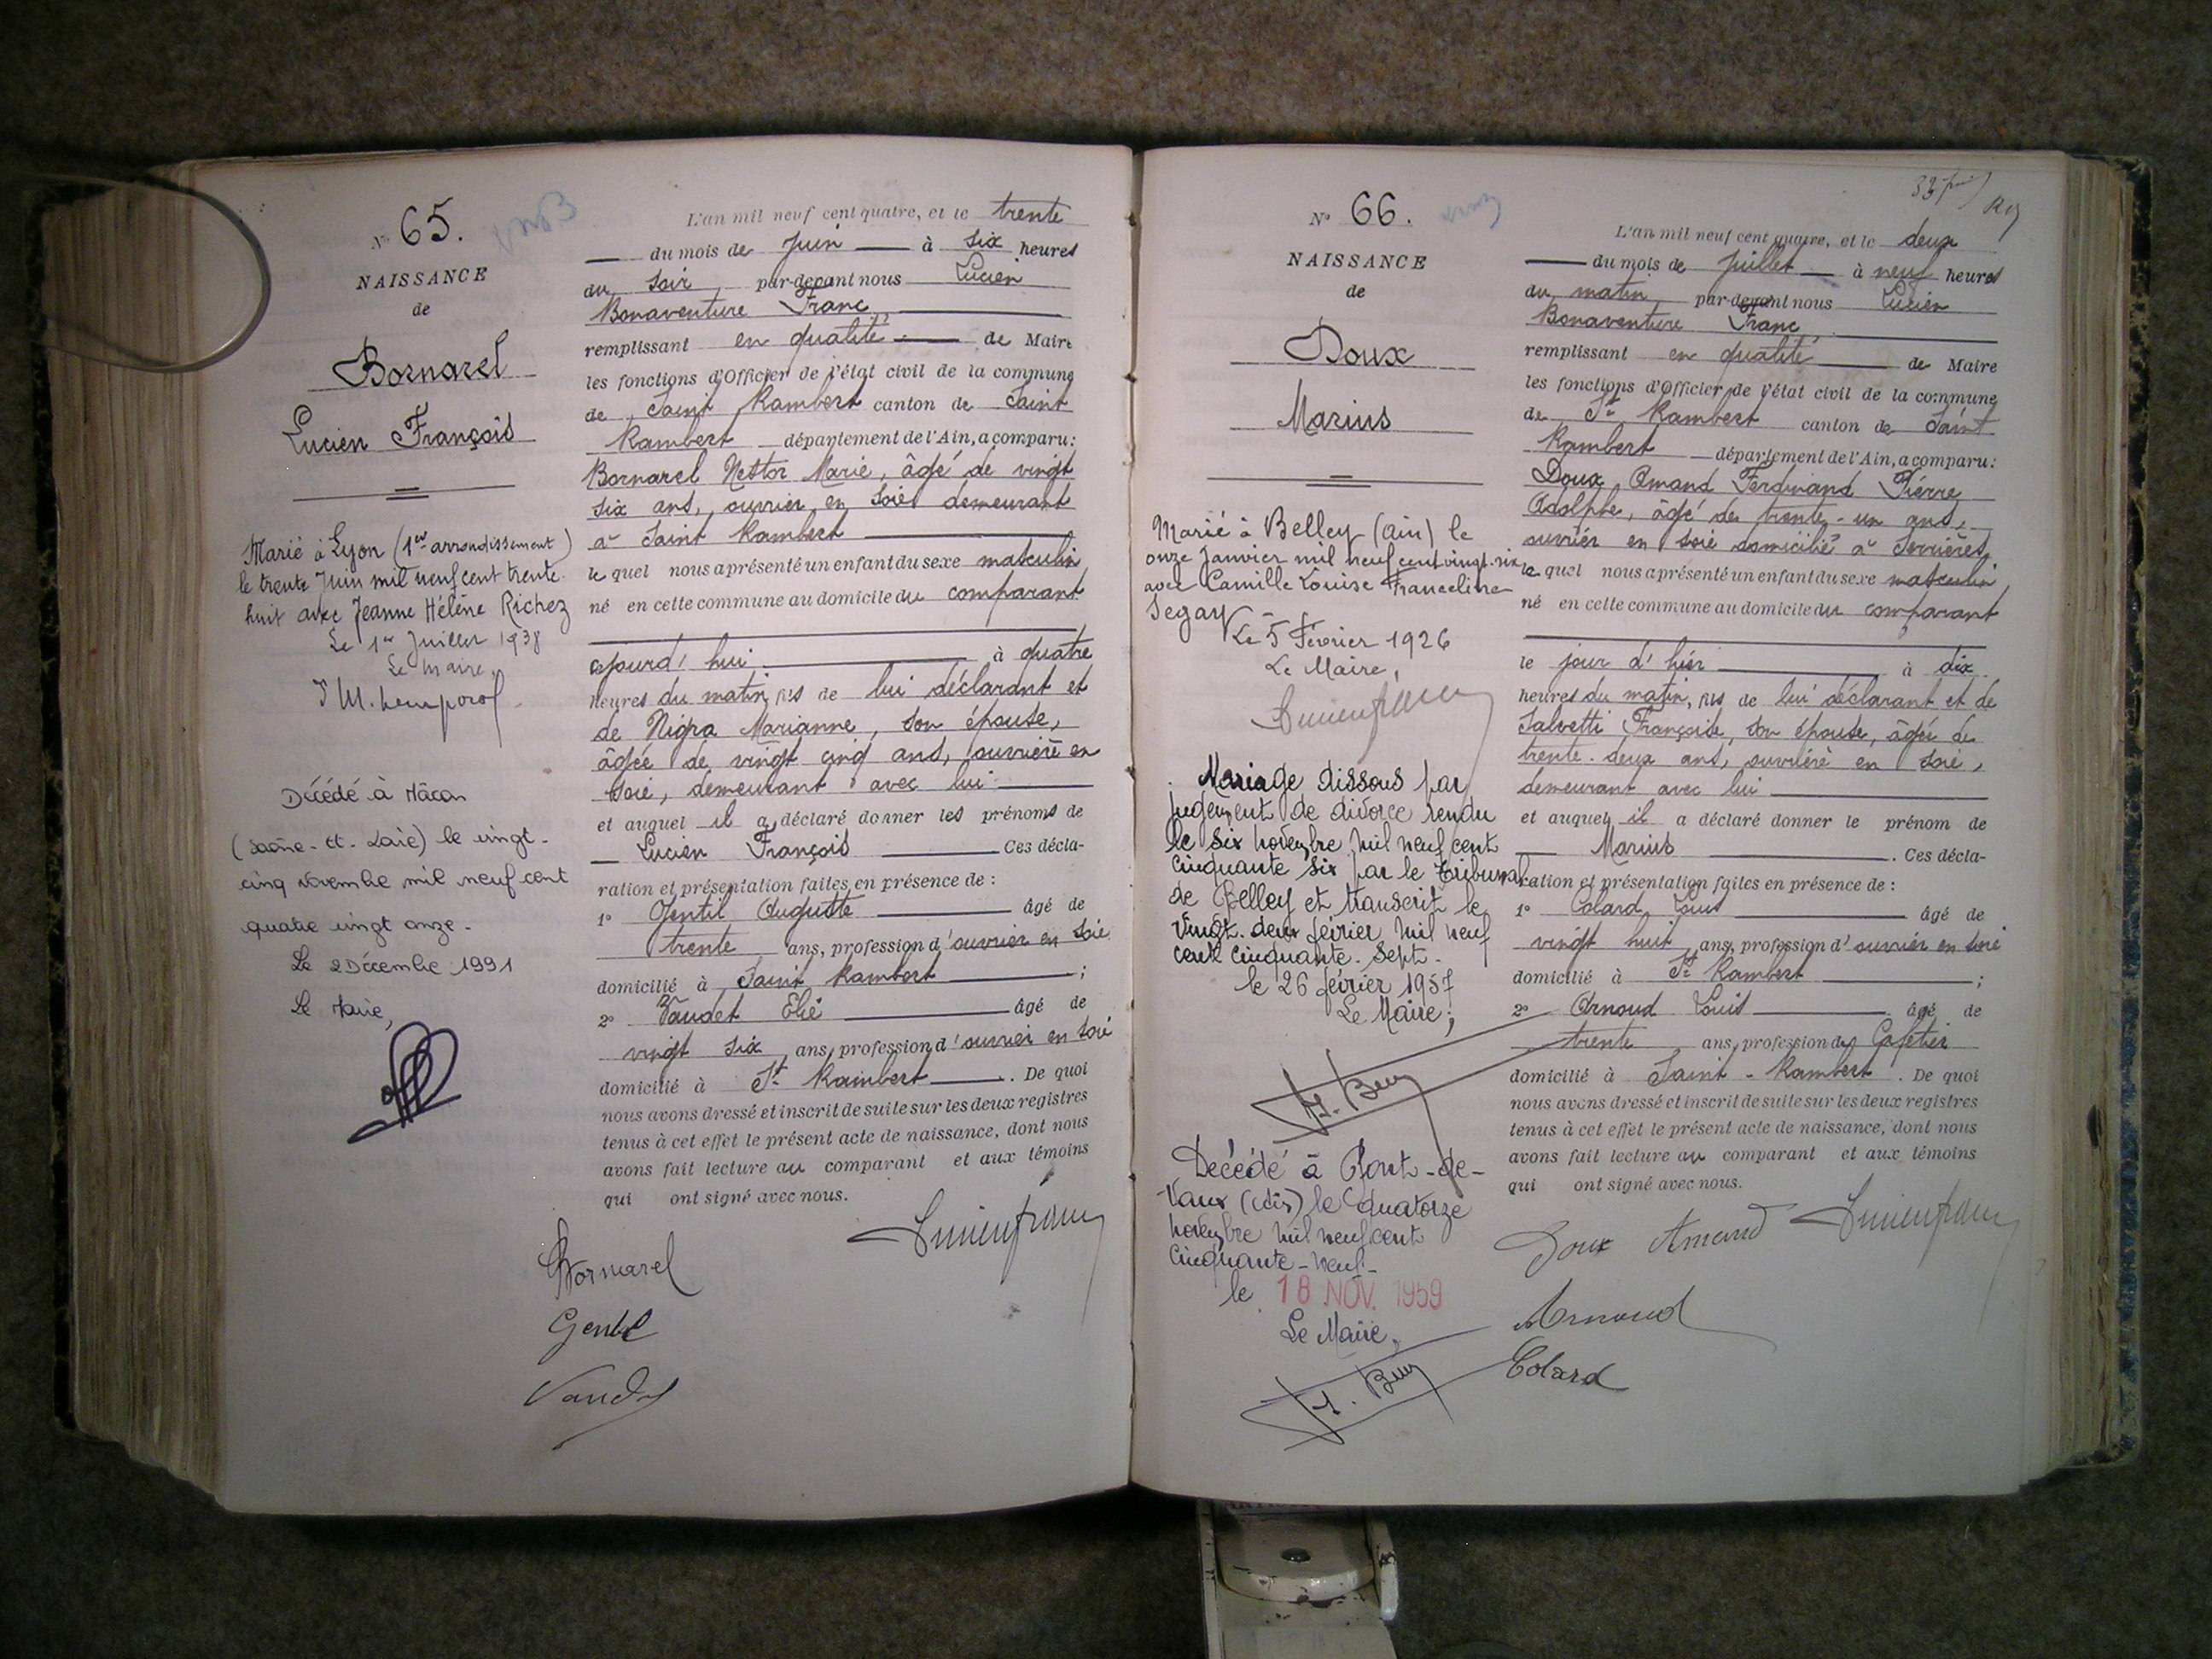 N° 65.
NAISSANCE
de
Bornarel
Lucien François
Marié à Lyon (1er arrondissement)
le trente Juin mil neuf cent trente
huit avec Jeanne Hélène Richez
Le 1er Juillet 1938
Le Maire,
Décédé à Mâcon
(Saône-et-Loire) le vingt-
cinq novembre mil neuf cent
quatre vingt onze.
Le 2 Décembre 1991
Le Maire,
L'an mil neuf cent quatre, et le trente
du mois de Juin à six heures
du soir par-devant nous Lucien
Bonaventure Franc
remplissant en qualité de Maire
les fonctions d'Officier de l'état civil de la commune
de Saint Rambert canton de Saint
Rambert département de l'Ain, a comparu:
Bornarel Nestor Marie, âgé de vingt
six ans, ouvrier en soie demeurant
à Saint Rambert
le quel nous a présenté un enfant du sexe masculin
né en cette commune au domicile du comparant
ajourd'hui à quatre
heures du matin, fils de lui déclarant et
de Nigra Marianne, son épouse,
âgée de vingt cinq ans, ouvrière en
soie, demeurant avec lui
et auquel il a déclaré donner les prénoms de
Lucien François Ces décla-
ration et présentation faites en présence de :
1° Gentil Auguste âgé de
trente ans, profession d'ouvrier en soie
domicilié à Saint Rambert ;
2° Vaudet Elie âgé de
vingt six ans, profession d'ouvrier en soie
domicilié à St Rambert . De quoi
nous avons dressé et inscrit de suite sur les deux registres
tenus à cet effet le présent acte de naissance, dont nous
avons fait lecture au comparant et aux témoins
qui ont signé avec nous.
Lucien franc
Bornarel
Gentil
Vaudet
Ry
N° 66.
NAISSANCE
de
Doux
Marius
Marié à Belley (Ain) le
onze Janvier mil neuf cent vingt-six
avec Camille Louise Franceline
Segay
Le 5 Février 1926
Le Maire,
Lucien franc
Mariage dissous par
jugement de divorce rendu
le six novembre mil neuf cent
cinquante six par le Tribunal
de Belley et transcrit le
vingt-deux février mil neuf
cent cinquante-sept-
le 26 février 1957
Le Maire,
Décédé à Pont-de-
Vaux (Ain) le quatorze
novembre mil neuf cent
cinquante-neuf-
le 18 NOV. 1959
Le Maire,
L'an mil neuf cent quatre, et le deux
du mois de Juillet à neuf heures
du matin par-devant nous Lucien
Bonaventure Franc
remplissant en qualité de Maire
les fonctions d'Officier de l'état civil de la commune
de St Rambert canton de Saint
Rambert département de l'Ain, a comparu:
Doux Amand Ferdinand Pierre
Adolphe, âgé de trente-un ans,
ouvrier en soie domicilié à Serrières,
le quel nous a présenté un enfant du sexe masculin
né en cette commune au domicile du comparant
le jour d'hier à dix
heures du matin, fils de lui déclarant et de
Salvetti Françoise, son épouse, âgée de
trente-deux ans, ouvrière en soie,
demeurant avec lui
et auquel il a déclaré donner le prénom de
Marius . Ces décla-
ration et présentation faites en présence de :
1° Colard Louis âgé de
vingt huit ans, profession d'ouvrier en soie
domicilié à St Rambert ;
2° Arnoud Louis âgé de
trente ans, profession de Cafetier
domicilié à Saint-Rambert . De quoi
nous avons dressé et inscrit de suite sur les deux registres
tenus à cet effet le présent acte de naissance, dont nous
avons fait lecture au comparant et aux témoins
qui ont signé avec nous.
Doux Amand Lucien franc
Arnoud
Colard